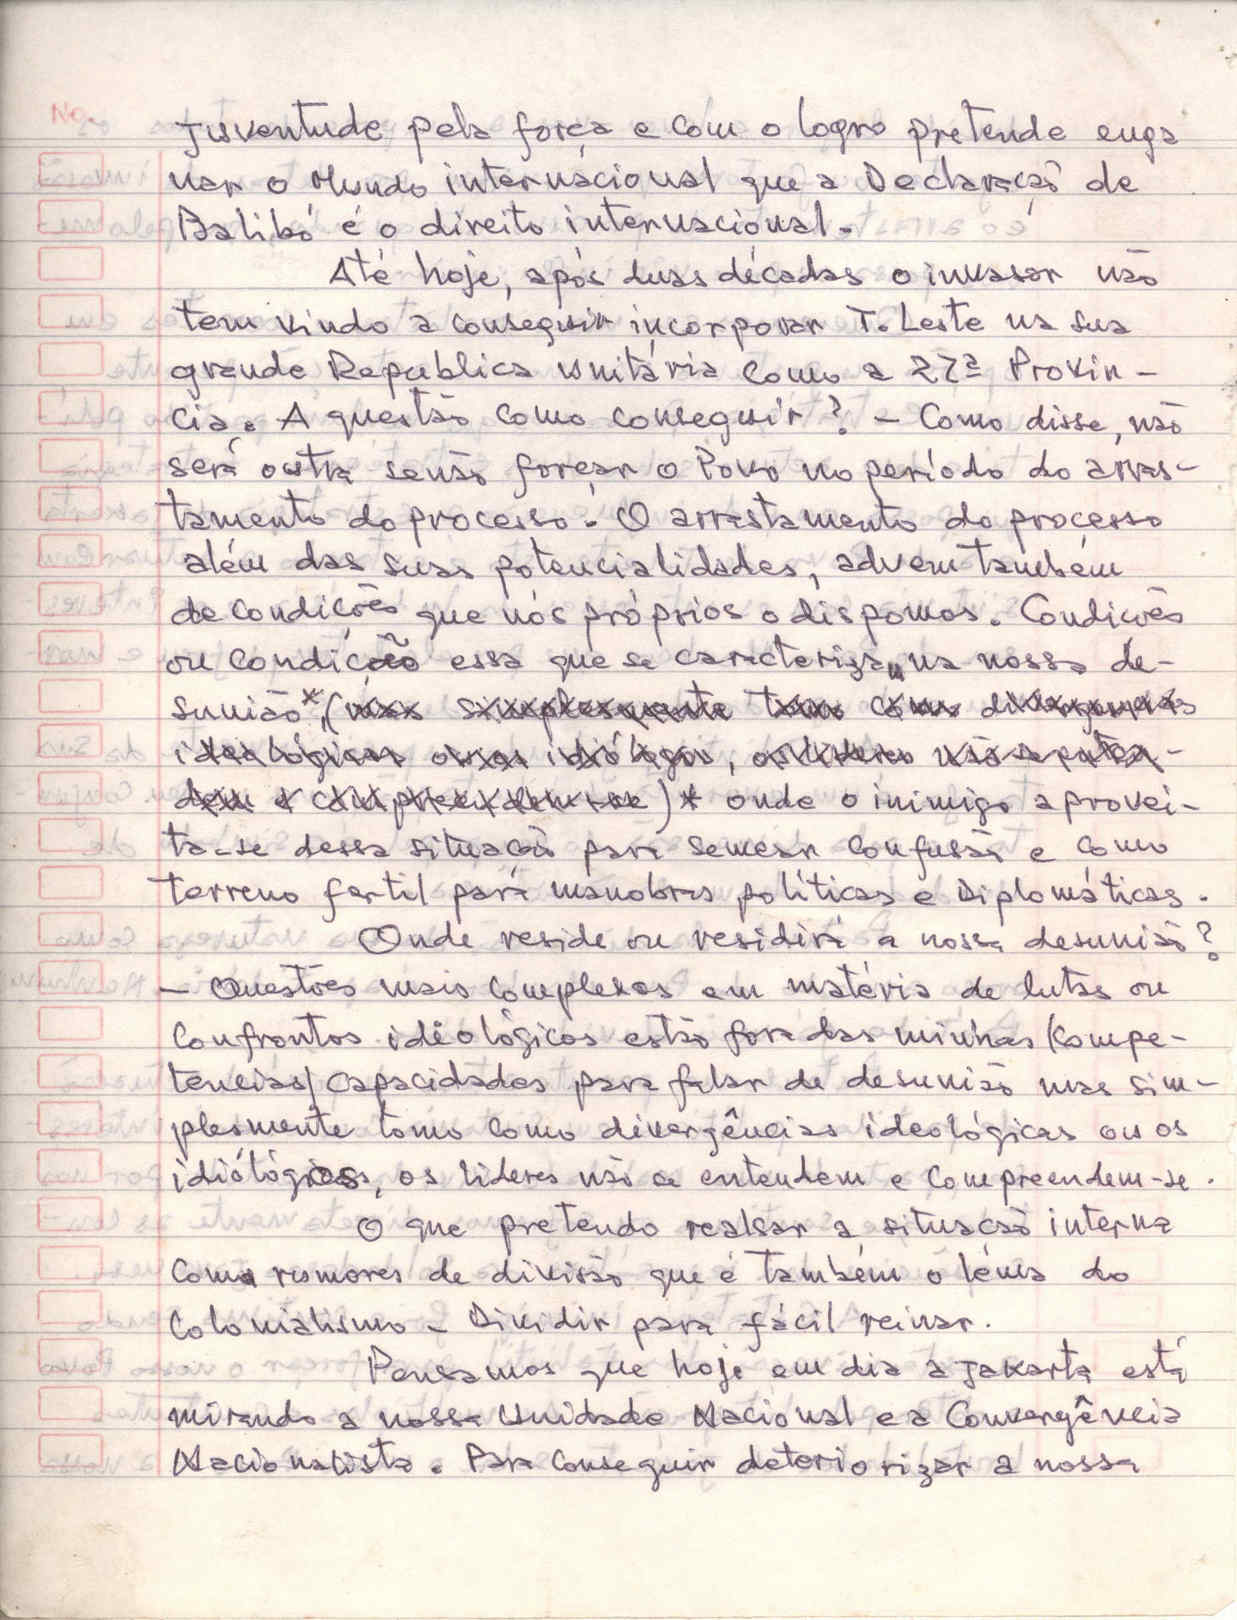 No.
juventude pela força e com o logro pretende enga
nar o Mundo internacional que a Declaração de
Balibó é o direito internacional.
Até hoje, após duas décadas o invasor não
tem vindo a conseguir incorporar T. Leste na sua
grande Republica unitária como a 27ª Provín-
cia. A questão como conseguir? - Como disse, não
será outra senão forçar o Povo no período do arras-
tamento do processo. O arrastamento do processo
além das suas potencialidades, advem também
de condições que nós próprios o dispomos. Condições
ou condição essa que se caracterizam na nossa de-
sunião*, (mas simplesmente tomo como divergencias
idealógicas ou os idiólogos, os lideres não se enten-
dem e compreendem-se)* onde o inimigo aprovei-
ta-se dessa situação para semear confusão e como
terreno fertil para manobras políticas e Diplomáticas.
Onde reside ou residirá a nossa desunião?
- Questões mais complexas em matéria de lutas ou
confrontos idiológicos estão fora das minhas (compe-
tencias) capacidades para falar de desunião mas sim-
plesmente tomo como divergências ideológicas ou os
idiólógicos, os lideres não se entendem e compreendem-se.
O que pretendo realsar a situação interna
como rumores de divisão que é também o lema do
colonialismo - Dividir para fácil reinar.
Pensamos que hoje em dia a Jakarta está
mirando a nossa Unidade Nacional e a Convergência
Nacionalista. Para conseguir deteriorizar a nossa